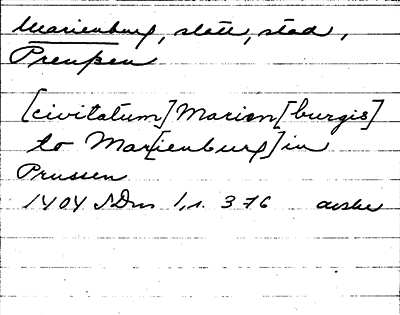 Marienburg, slott, stad,
Preußen
[civitatum] Marien[burgis]
to Mar[ienburg] in
Prussen
1404 SDns 1, s. 376